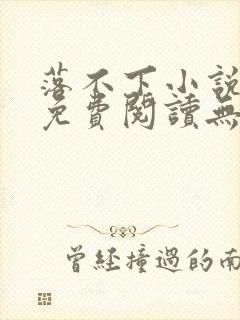 落不下小說
免費閱讀無
曾經撞過的南